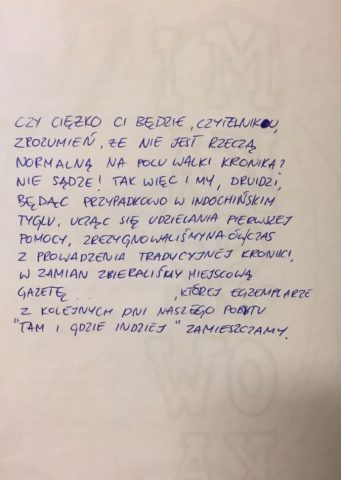 CZY CIĘŻKO CI BĘDZIE, CZYTELNIKU,
ZROZUMIEŃ, ŻE NIE JEST RZECZĄ
NORMALNĄ NA POLU WALKI KRONIKA?
NIE SĄDZĘ! TAK WIĘC I MY, DRUIDZI,
BĘDĄC PRZYPADKOWO W INDOCHIŃSKIM
TYGLU, UCZĄC SIĘ UDZIELANIA PIERWSZEJ
POMOCY, ZREZYGNOWALIŚMY NAÓWCZAS
Z PROWADZENIA TRADYCYJNEJ KRONIKI.
W ZAMIAN ZBIERALIŚMY MIEJSCOWĄ
GAZETĘ . . . , KTÓREJ EGZEMPLARZE
Z KOLEJNYCH DNI NASZEGO POBYTU
"TAM I GDZIE INDZIEJ" ZAMIESZCZAMY.